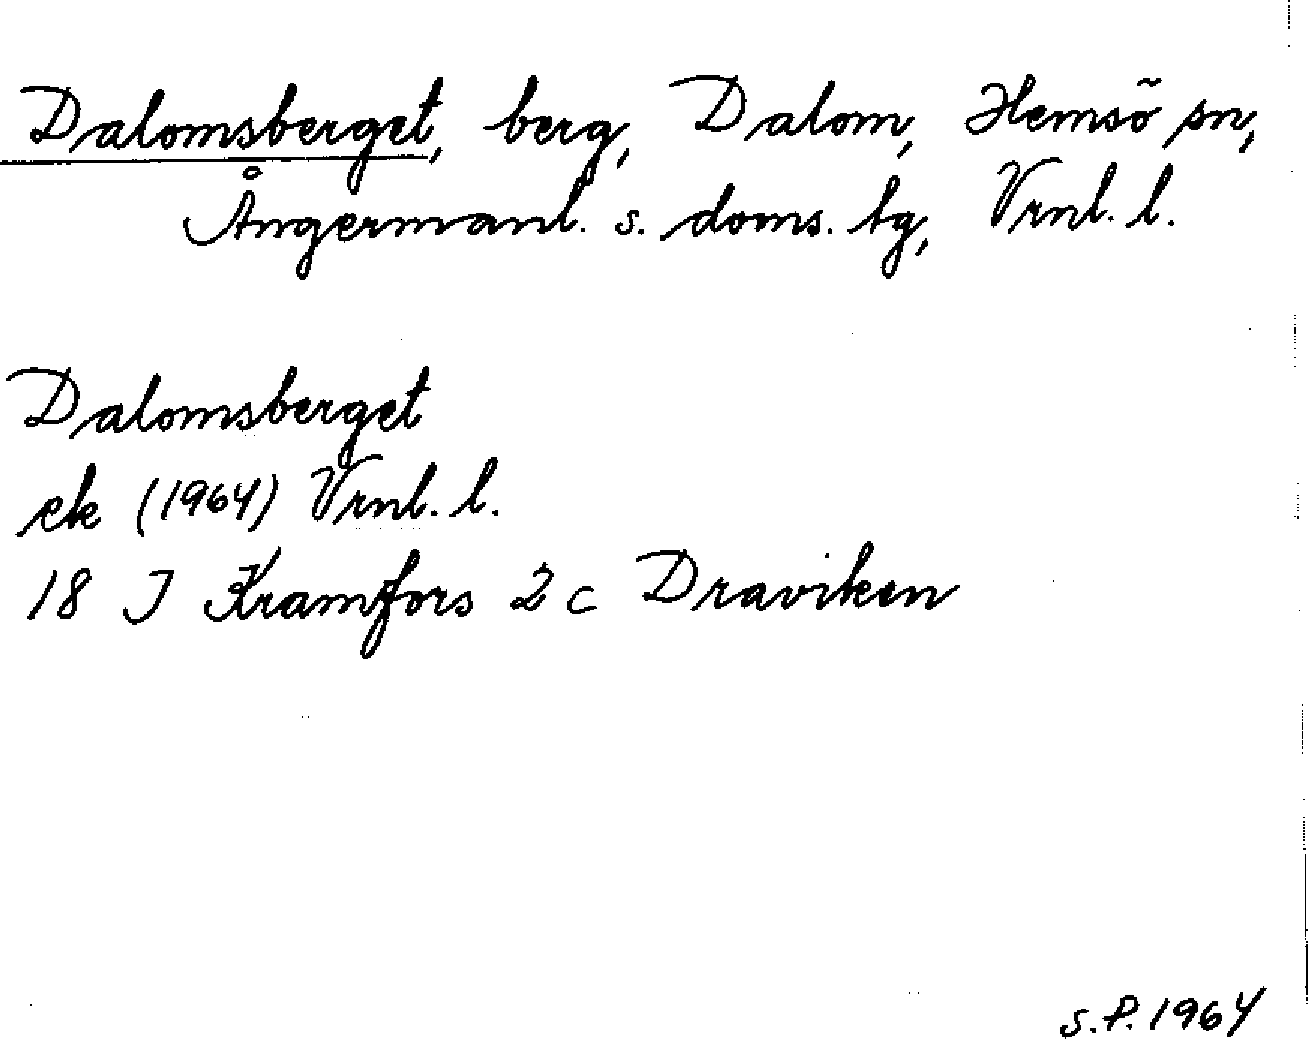 Dalomsberget, berg, Dalom, Hemsö sn,
Ångermanl. s. doms. tg, Vrnl. l.
Dalomsberget
ek (1964) Vrnl. l.
18 J Kramfors 2 c Draviken
S.P. 1964